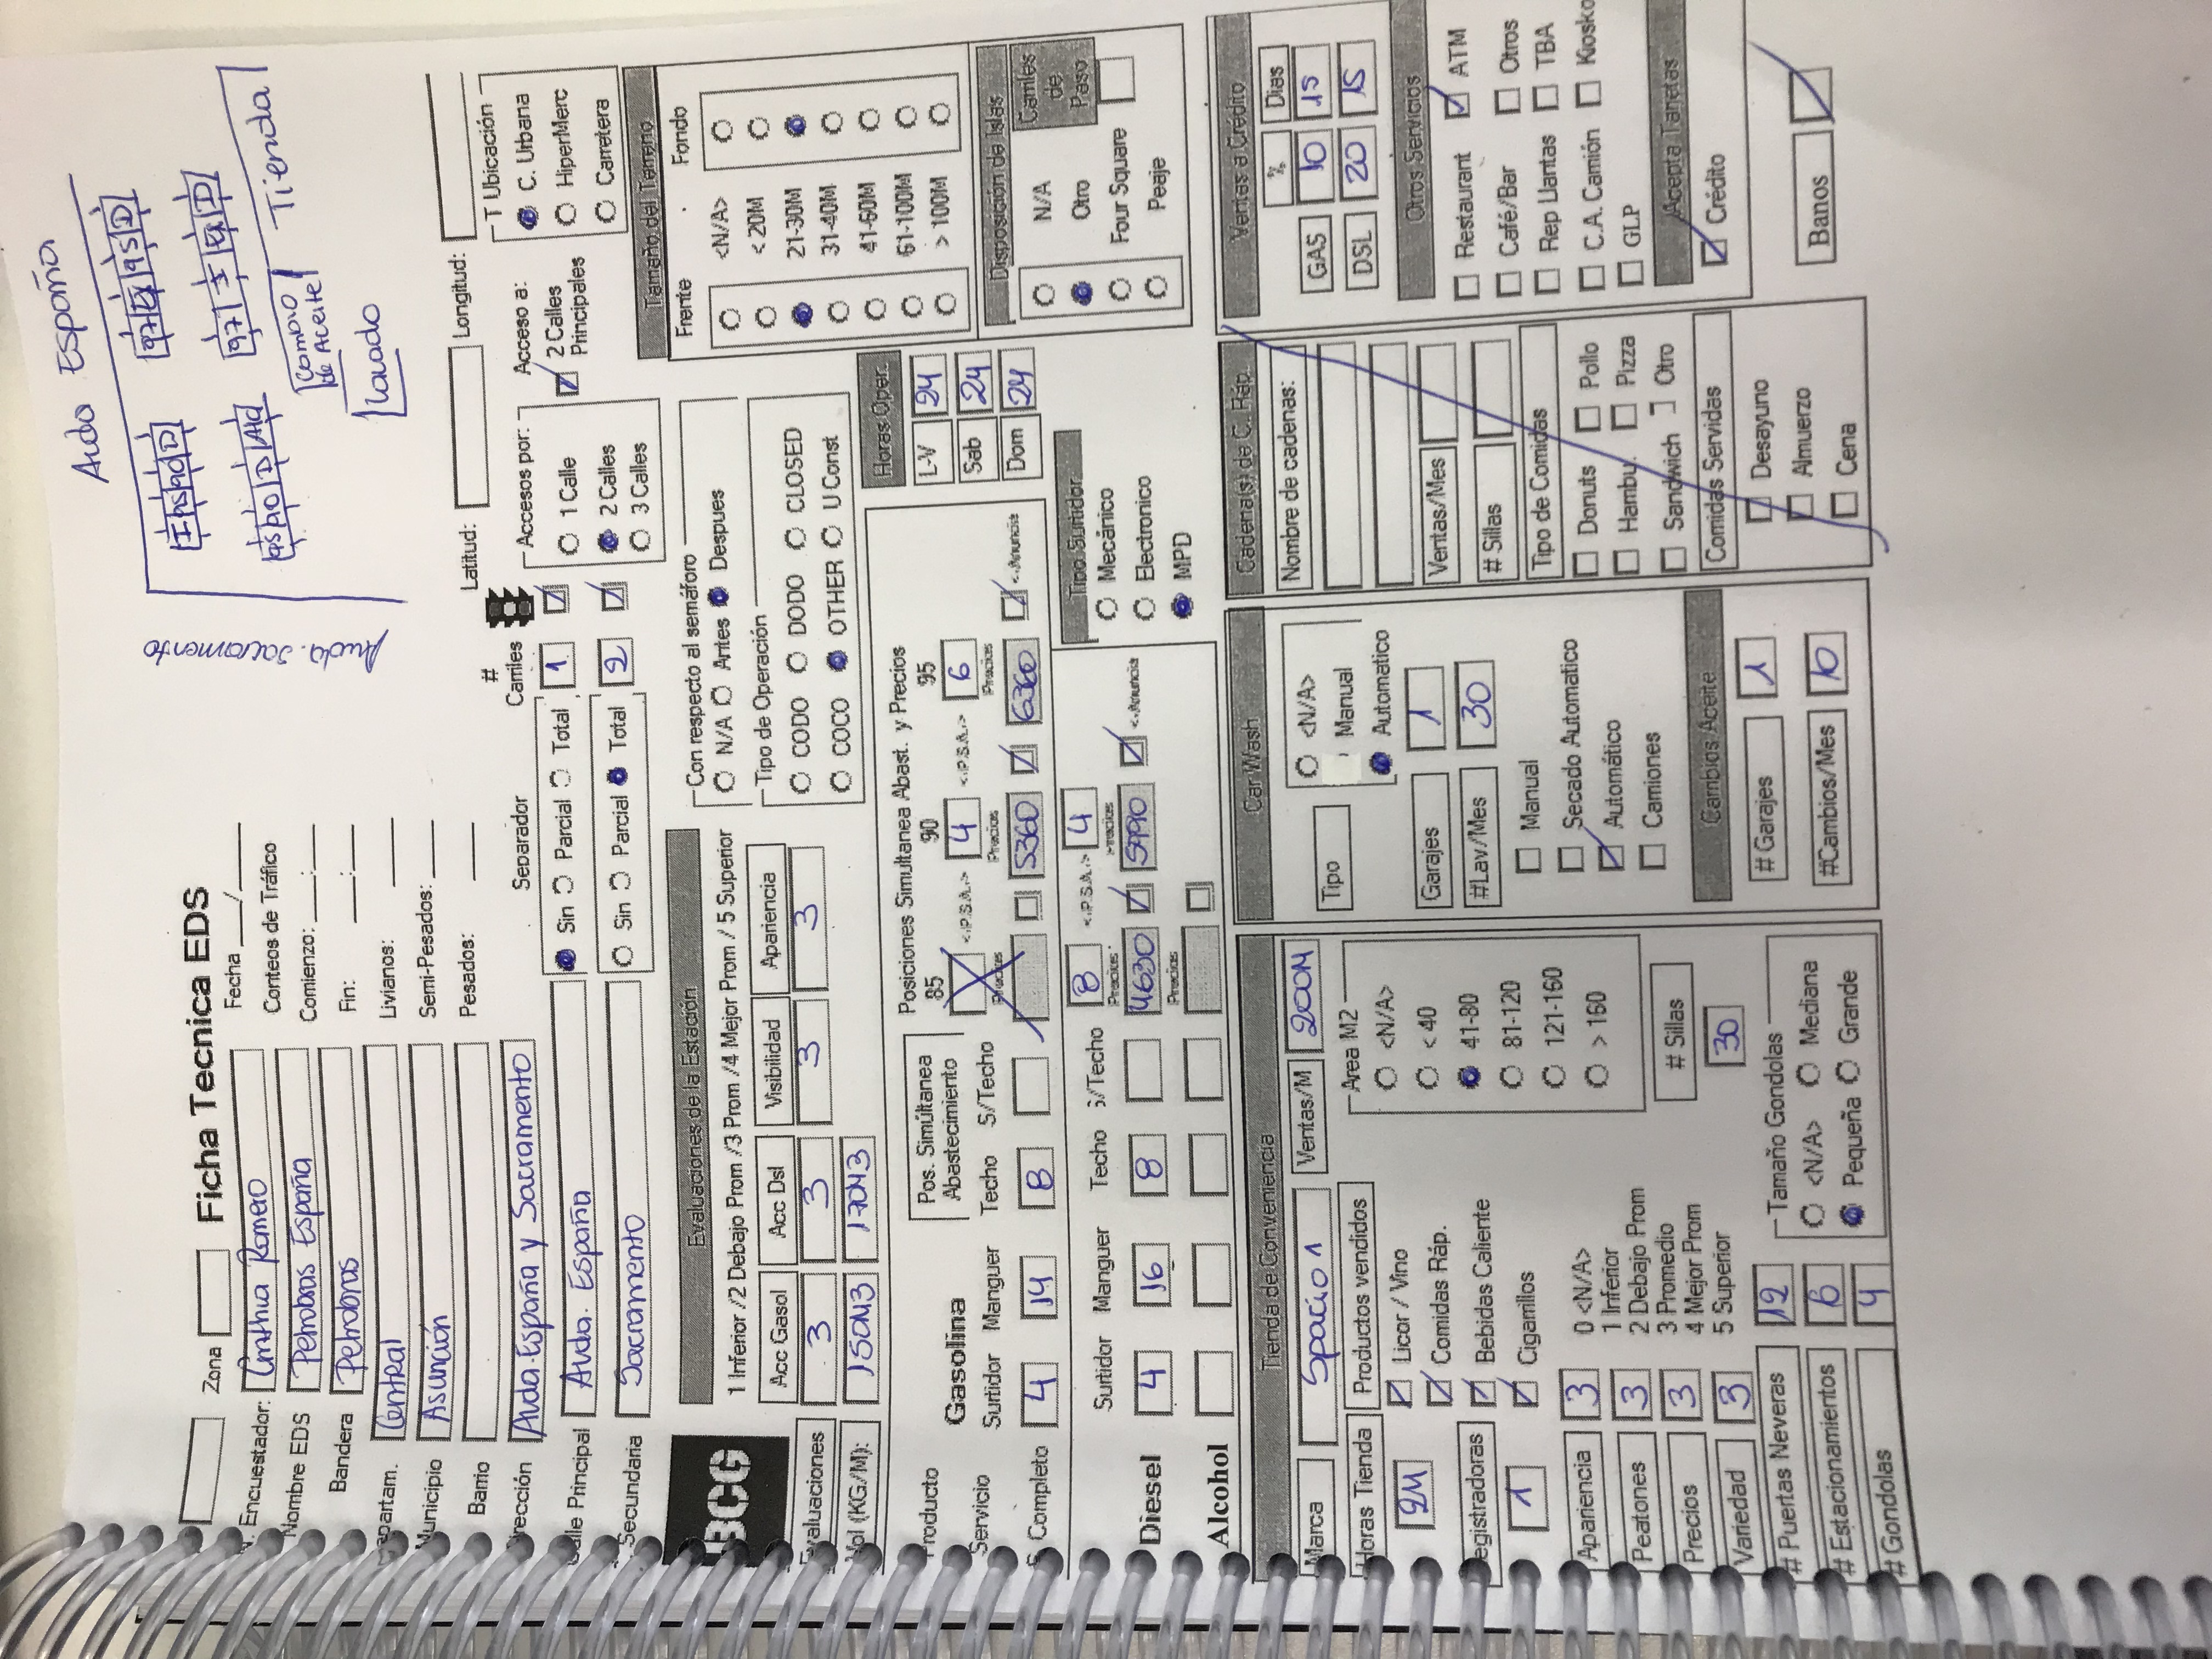 Avda España
I 95 90 D
97 90 95 D
95 90 D Ad
97 I 90 D
Cambio de Aceite
Tienda
Lavado
Avda. Sacramento
Zona
Ficha Tecnica EDS
Fecha ___/___
Conteos de Tráfico
Comienzo: ___:___
Fin: ___:___
Livianos: ____
Semi-Pesados: ____
Pesados: ____
N. Encuestador: Cinthia Romero
Nombre EDS Petrobras España
Bandera Petrobras
Departam. Central
Municipio Asunción
Barrio
Dirección Avda. España y Sacramento
Calle Principal Avda. España
Secundaria Sacramento
Latitud:
Longitud:
Separador
# Carriles
Sin Parcial Total 1
Sin Parcial Total 2
Accesos por:
1 Calle
2 Calles
3 Calles
Acceso a:
2 Calles Principales
T Ubicación
C. Urbana
HiperMerc
Carretera
BCG
Evaluaciones de la Estación
1 Inferior /2 Debajo Prom /3 Prom /4 Mejor Prom / 5 Superior
Acc Gasol Acc Dsl Visibilidad Apariencia
Evaluaciones 3 3 3 3
Vol (KG./M): 150M3 170M3
Con respecto al semáforo
N/A Antes Despues
Tipo de Operación
CODO DODO CLOSED
COCO OTHER U Const
Tamaño del Terreno
Frente Fondo
<N/A>
< 20M
21-30M
31-40M
41-60M
61-100M
> 100M
Producto
Servicio
Gasolina
Pos. Simúltanea Abastecimiento
Posiciones Simultanea Abast. y Precios
85 90 95
<.P.S.A.> 4 <.P.S.A.> 6
Surtidor Manguer Techo S/Techo
Precios Precios Precios
S. Completo 4 14 8 5360 6360 <.Anuncia
Horas Oper.
L-V 24
Sab 24
Dom 24
Disposición de Islas
N/A
Otro
Four Square
Peaje
Carriles de Paso
Diesel
Surtidor Manguer Techo S/Techo
8 <.P.S.A.> 4
Precios Precios
4 16 8 4630 5990 <.Anuncia
Alcohol
Precios
Tipo Surtidor
Mecánico
Electronico
MPD
Tienda de Conveniencia
Marca Spacio 1 Ventas/M 200M
Horas Tienda Productos vendidos
24
Licor / Vino
Comidas Ráp.
Registradoras
Bebidas Caliente
1
Cigarrillos
Area M2
<N/A>
< 40
41-80
81-120
121-160
> 160
Apariencia 3
Peatones 3
Precios 3
Variedad 3
0 <N/A>
1 Inferior
2 Debajo Prom
3 Promedio
4 Mejor Prom
5 Superior
# Sillas
30
# Puertas Neveras 12
# Estacionamientos 6
# Gondolas 4
Tamaño Gondolas
<N/A> Mediana
Pequeña Grande
Car Wash
Tipo
<N/A>
Manual
Automatico
Garajes 1
#Lav/Mes 30
Manual
Secado Automatico
Automático
Camiones
Cambios Aceite
# Garajes 1
#Cambios/Mes 10
Cadena(s) de C. Ráp.
Nombre de cadenas:
Ventas/Mes
# Sillas
Tipo de Comidas
Donuts Pollo
Hambu. Pizza
Sandwich Otro
Comidas Servidas
Desayuno
Almuerzo
Cena
Ventas a Crédito
% Dias
GAS 10 15
DSL 20 15
Otros Servicios
Restaurant ATM
Café/Bar Otros
Rep Llantas TBA
C.A. Camión Kiosko
GLP
Acepta Tarjetas
Crédito
Banos